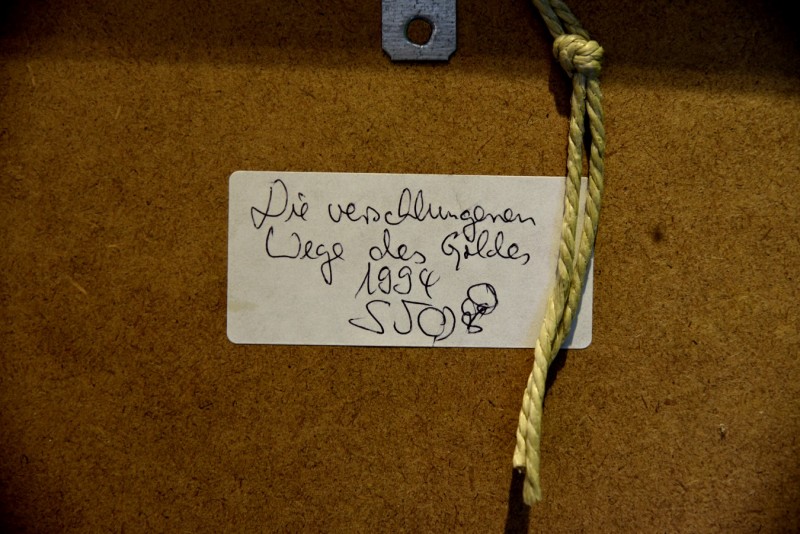 Die verschlungenen
Wege des Goldes
1994